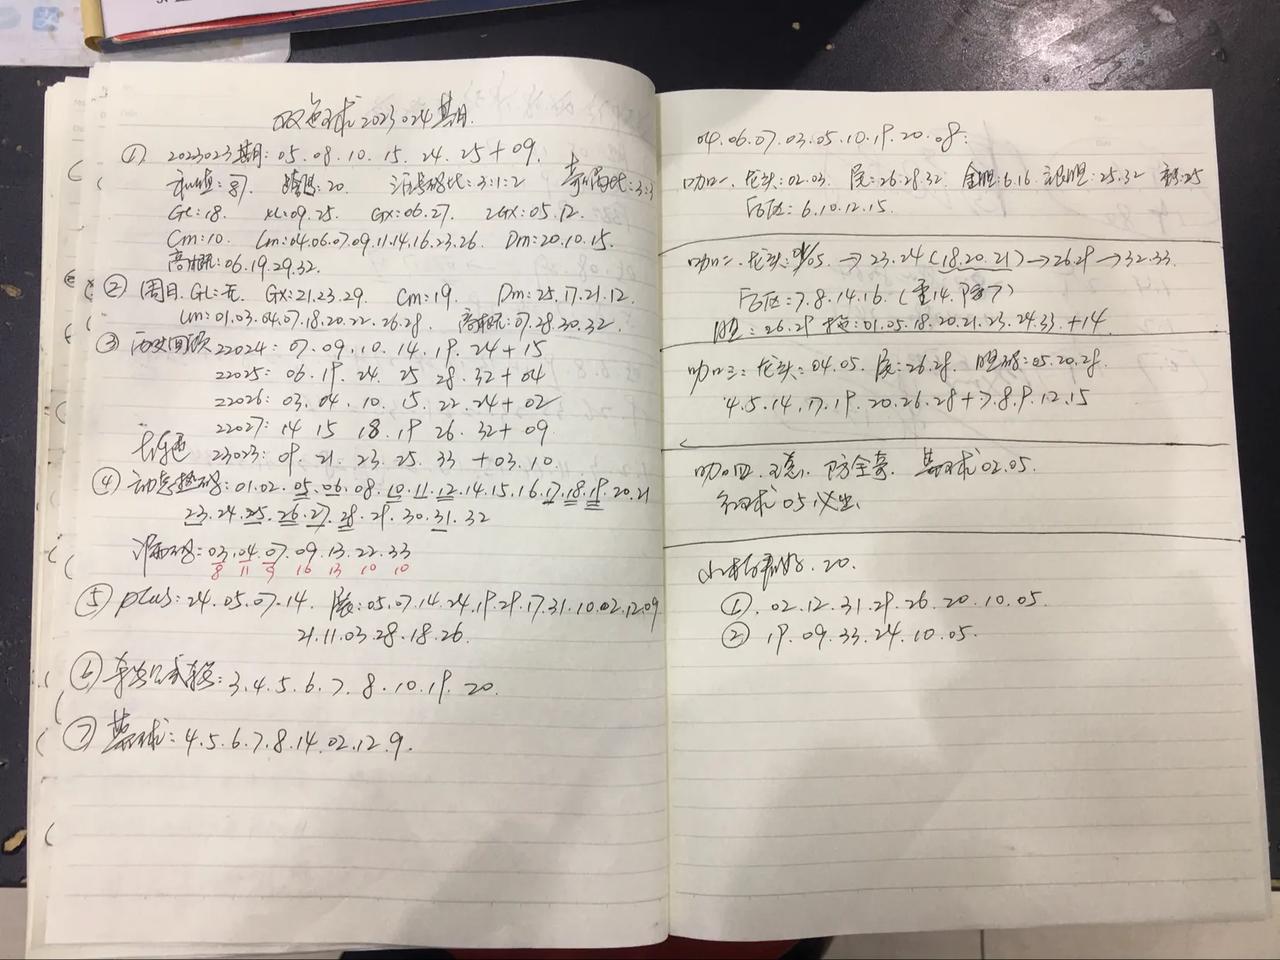 双色球2023024期
① 2023023期: 05.08.10.15.24.25+09.
和值:87. 跨度:20. 3:1:2 奇偶比:3:3
GL:18. XL:09.25. GX:06.27. ZGX:05.12.
Cm:10. Lm:04.06.07.09.11.14.16.23.26. Dm:20.10.15.
高概:06.19.29.32.
② 周日.GL:无. GX:21.23.29. Cm:19. Dm:25.17.21.12.
Lm:01.03.04.07.18.20.22.26.28. 高概:07.28.30.32.
③ 历史回顾 22024: 07.09.10.14.19.24+15
22025: 06.19.24.25.28.32+04
22026: 03.04.10.15.22.24+02
22027: 14 15 18.19 26.32+09
大乐透 23023: 09.21.23.25.33+03.10.
④ 动态热码:01.02.05.06.08.10.11.12.14.15.16.17.18.19.20.21
23.24.25.26.27.28.29.30.31.32
漏码:03.04.07.09.13.22.33
8 11 9 16 13 10 10
⑤ plus:24.05.07.14. 05.07.14.24.19.29.17.31.10.02.12.09
21.11.03.28.18.26.
⑥ 公式: 3.4.5.6.7.8.10.19.20.
⑦ 蓝球: 4.5.6.7.8.14.02.12.9.
04.06.07.03.05.10.19.20.08:
叻叻一. 龙头:02.03. 尾:26.28.32 金胆:6.16. 银胆:25.32
后区: 6.10.12.15.
叻叻二. 龙头:01/05. →23.24(18.20.21)→26.29→32.33.
后区:7.8.14.16.(重14.防7)
胆:26.29 拖:01.05.18.20.21.23.24.33.+14
叻叻三: 龙头:04.05. 尾:26.28. 胆码:05.20.28.
4.5.14.17.19.20.26.28+7.8.9.12.15
叻叻四. 防全奇. 蓝球02.05.
红球05必出.
20.
①.02.12.31.29.26.20.10.05.
② 19.09.33.24.10.05.